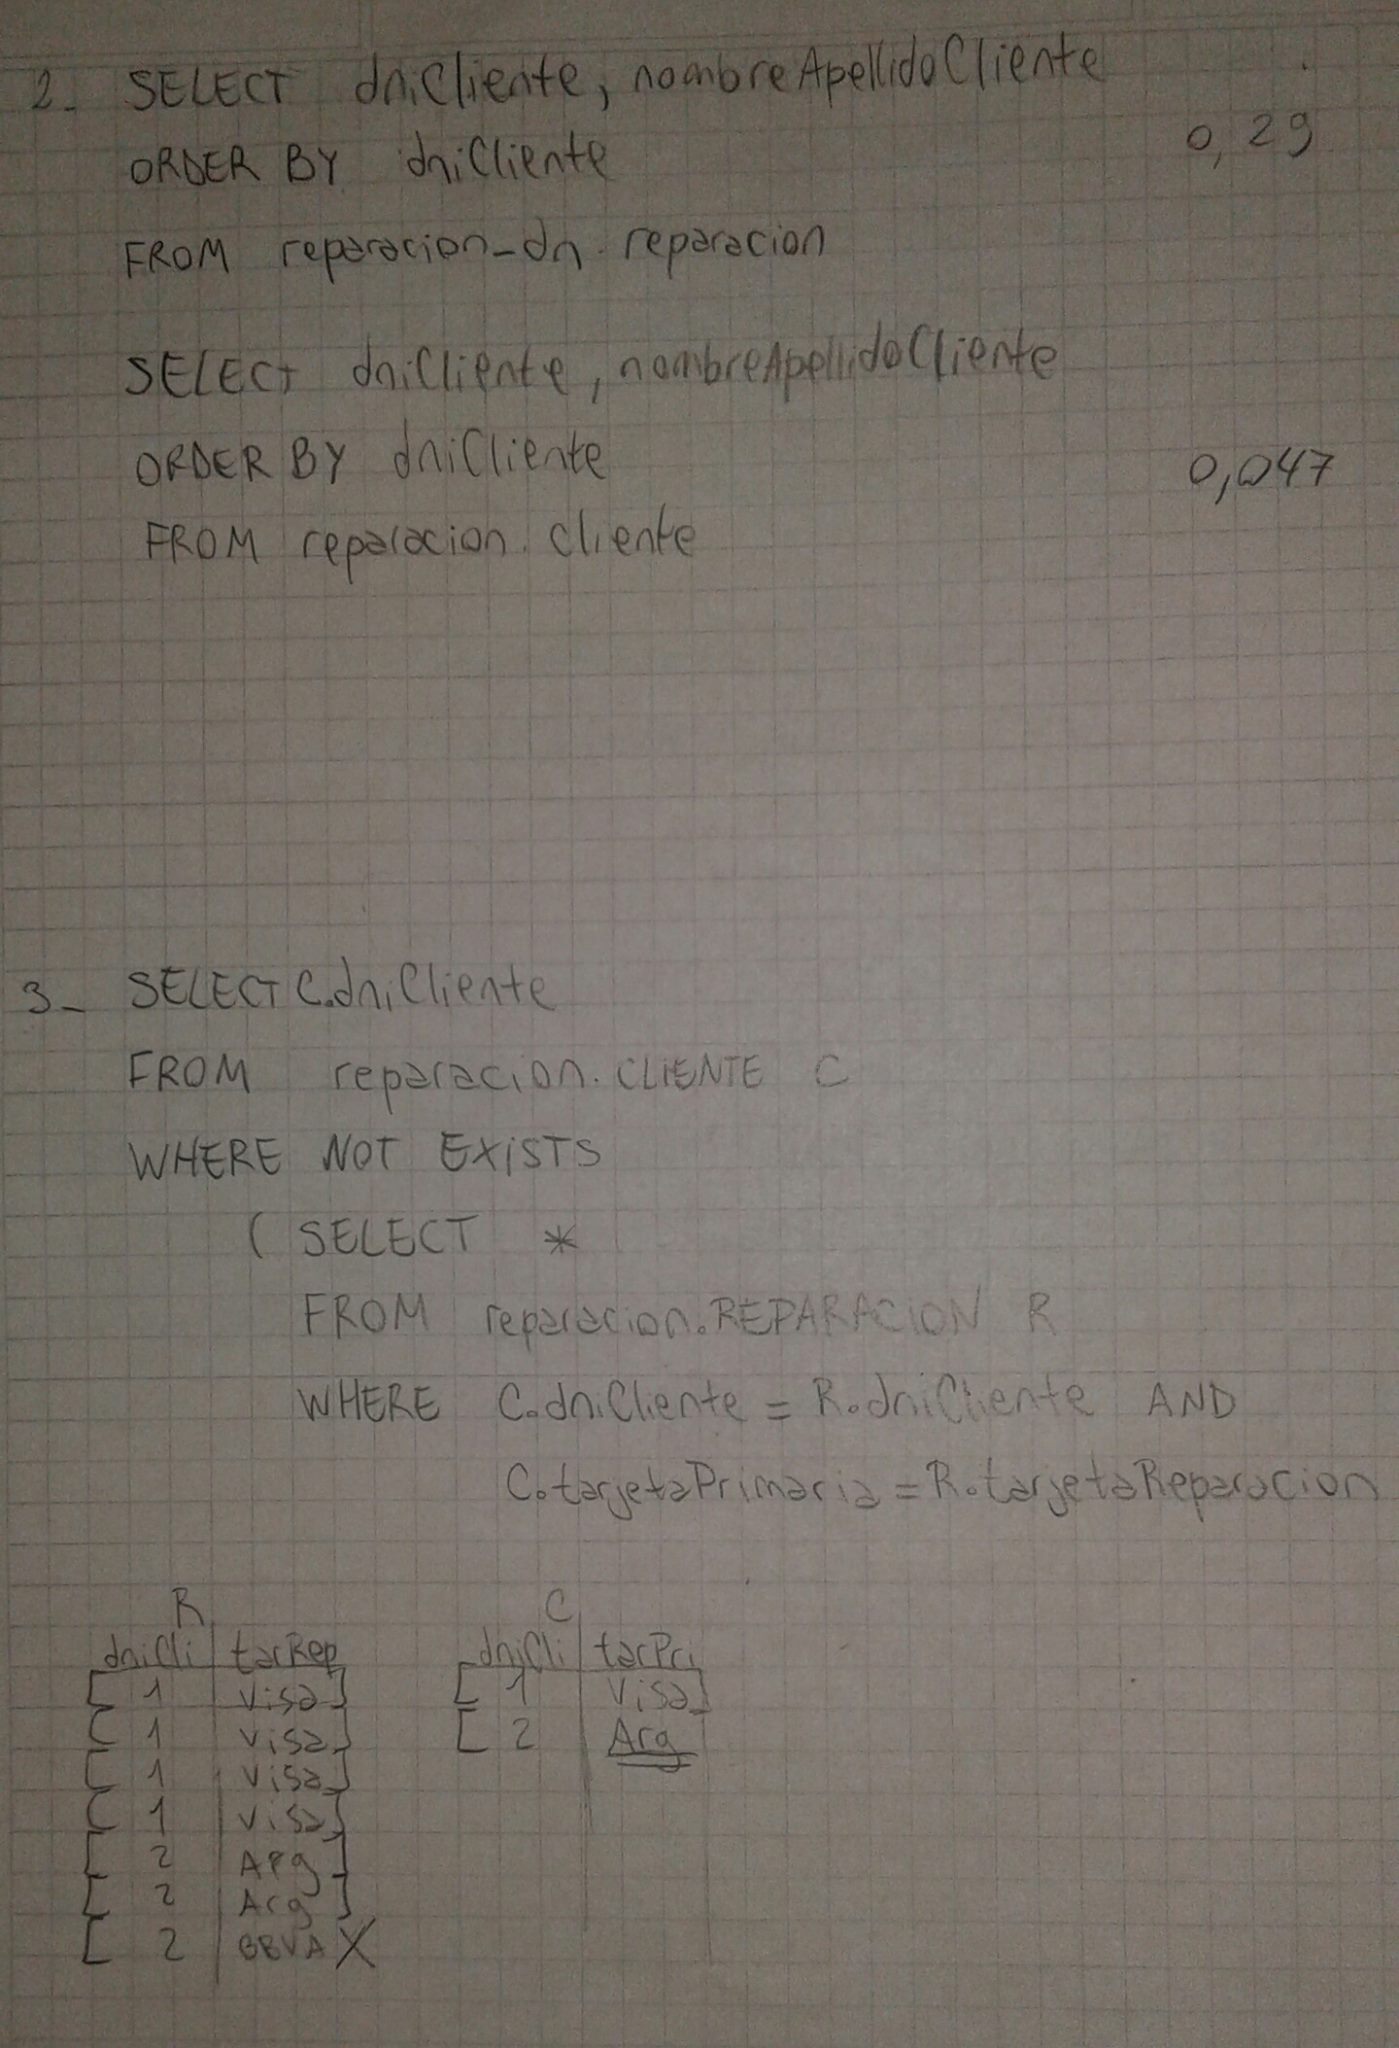 2- SELECT dniCliente, nombreApellidoCliente
ORDER BY dniCliente 0,29
FROM reparacion-dn. reparacion
SELECT dniCliente, nombreApellidoCliente
ORDER BY dniCliente 0,047
FROM reparacion. cliente
3- SELECT C.dniCliente
FROM reparacion. CLIENTE C
WHERE NOT EXISTS
( SELECT *
FROM reparacion.REPARACION R
WHERE C.dniCliente = R.dniCliente AND
C.tarjetaPrimaria = R.tarjetaReparacion
R C
dniCli tarRep dniCli tarPri
[ 1 Visa] [ 1 Visa]
[ 1 Visa] [ 2 Arg
[ 1 Visa]
[ 1 Visa]
[ 2 Arg ]
[ 2 Arg ]
[ 2 BBVA X